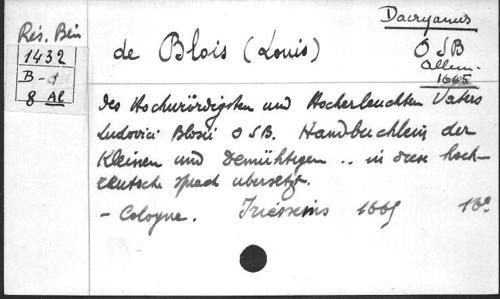 Rés. Bein
1432
B-1
8 Al
de Blois (Louis)
Dacryanus
OSB
Allem.
1665
des Hochwürdigsten und Hocherleuchten Vaters
Ludovici Blosii O S B. Handbuchlein der
Kleinen und Demühtigen .. in diese hoch-
teutsche sprach ubersetzt.
- Cologne. Friessems 1665